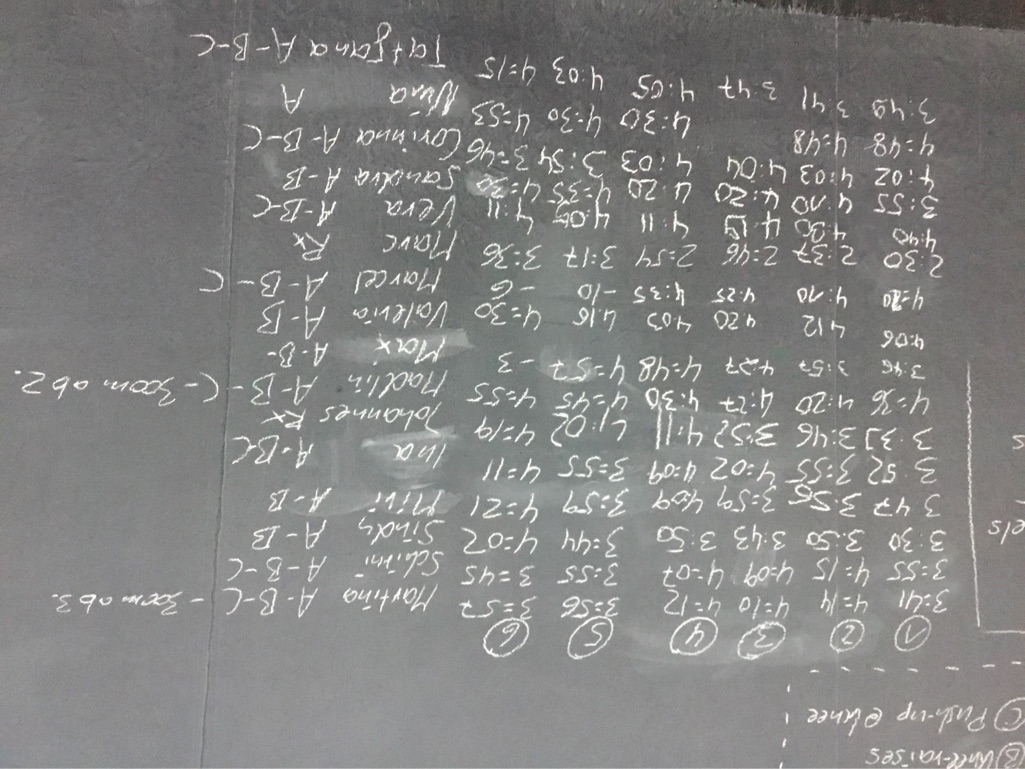 Ⓑ Knee-raises
Ⓒ Push-up @ knee
① ② ③ ④ ⑤ ⑥
3:41 4:14 4:10 4:12 3:56 3:57 Martina A-B-C - 300m ab 3.
3:55 4:15 4:09 4:07 3:55 3:45 Schimi A-B-C
3:30 3:50 3:43 3:50 3:44 4:02 Sindy A-B
els
3:47 3:56 3:59 4:09 3:59 4:21 Mivi A-B
3:52 3:55 4:02 4:09 3:55 4:11 Ina A-B-C
s
3:33 3:46 3:52 4:11 4:02 4:19 Johannes Rx
4:36 4:20 4:27 4:30 4:45 4:55 Madlin A-B-C - 300m ab 2.
3:46 3:57 4:27 4:48 4:57 -3 Max A-B-
4:06 4 12 4 20 4:03 4:16 4:30 Valeria A-B
4:20 4:10 4:25 4:35 -10 -6 Marcel A-B-C
2:30 2:37 2:46 2:54 3:17 3:36 Marc Rx
4:40 4:30 4:15 4:11 4:09 4:11 Vera A-B-C
3:55 4:10 4:20 4:20 4:35 4:30 Sandra A-B
4:02 4:03 4:04 4:03 3:54 3:46 Corinna A-B-C
4:48 4:48 4:30 4:30 4:53 Nina A
3:49 3:41 3:47 4:05 4:03 4:15 Tatjana A-B-C